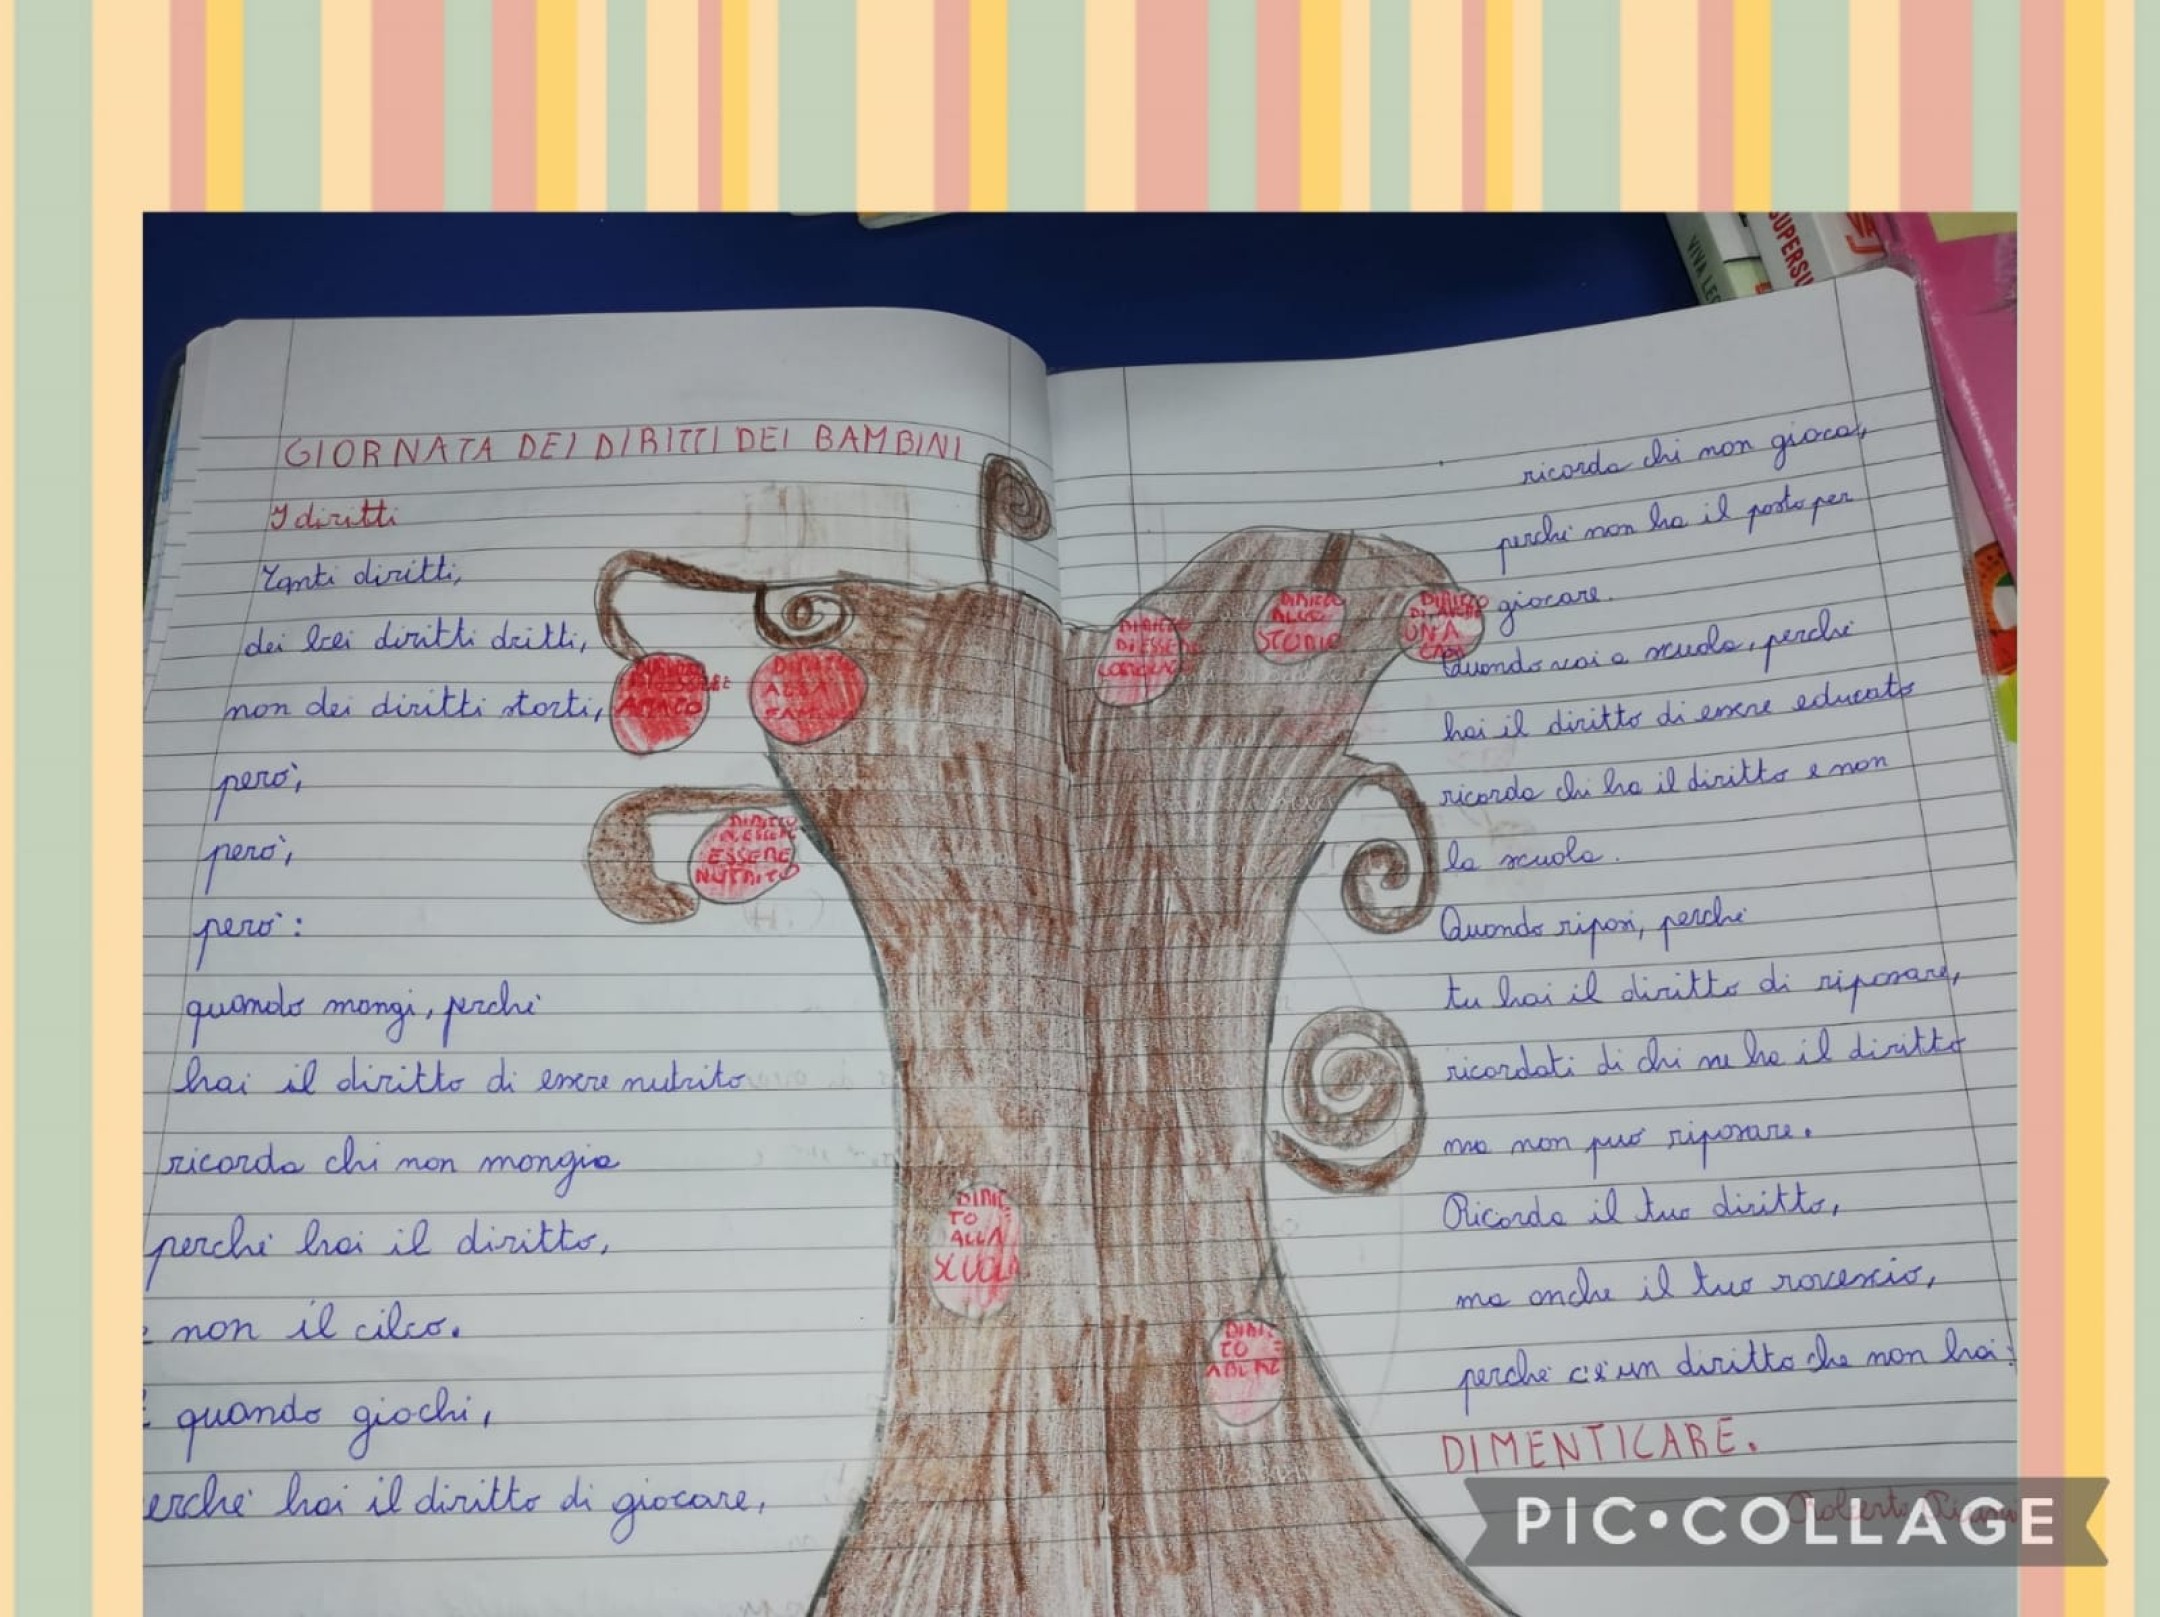 GIORNATA DEI DIRITTI DEI BAMBINI
I diritti
Tanti diritti,
dei bei diritti dritti,
non dei diritti storti,
però,
però,
però:
quando mangi, perché
hai il diritto di essere nutrito
ricorda chi non mangia
perché hai il diritto,
e non il cilco.
E quando giochi,
erché hai il diritto di giocare,
DIRITTO
ESSERE
AMATO
DIRITTO
ALLA
DIRITTO
DI ESSERE
ESSERE
NUTRITO
DIRIT
TO =
ALLA
SCUOLA
ricorda chi non gioca,
perché non ha il posto per
giocare.
Quando vai a scuola, perché
hai il diritto di essere educato
ricorda chi ha il diritto e non
la scuola.
Quando riposi, perché
tu hai il diritto di riposare,
ricordati di chi ne ha il diritto
ma non può riposare.
Ricorda il tuo diritto,
ma anche il tuo rovescio,
perché c'è un diritto che non hai:
DIMENTICARE.
DIRITTO
DI ESSERE
DIRITTO
ALLO
STUDIO
DIRITTO
DI AVERE
UNA
CASA
DIRIT
TO =
Roberto
VIVA LE
SUPERSU
VA
PIC•COLLAGE